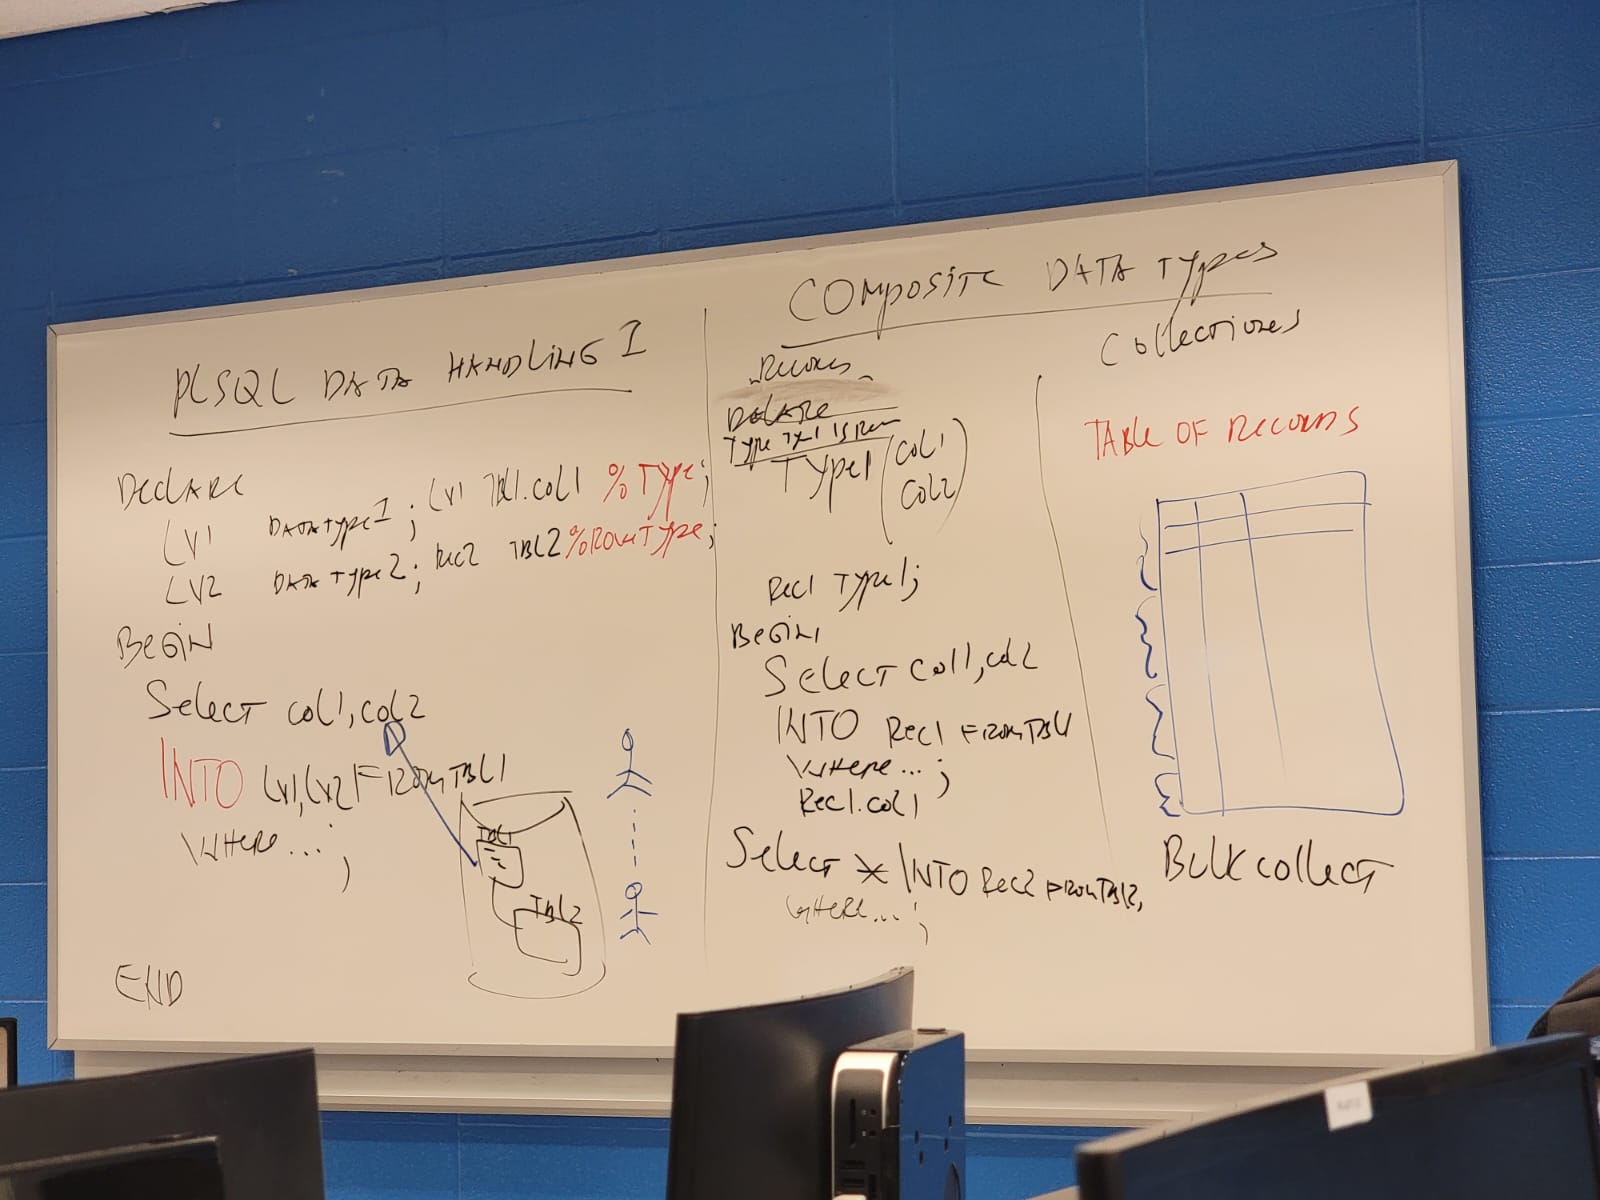 PLSQL DATA HANDLING I
DECLARE
LV1 DATATYPE1; LV1 TBL1.COL1 %TYPE;
LV2 DATATYPE2; REC2 TBL2%ROWTYPE;
BEGIN
SELECT COL1, COL2
INTO LV1, LV2 FROM TBL1
WHERE...
;
TBL1
TBL2
END
COMPOSITE DATA TYPES
RECORDS
DECLARE
TYPE TYP1 IS REC
TYPE1 (COL1
COL2)
REC1 TYPE1;
BEGIN
SELECT COL1, COL2
INTO REC1 FROM TBL1
WHERE... ;
REC1.COL1
SELECT * INTO REC2 FROM TBL2,
WHERE... ;
COLLECTIONS
TABLE OF RECORDS
BULK COLLECT